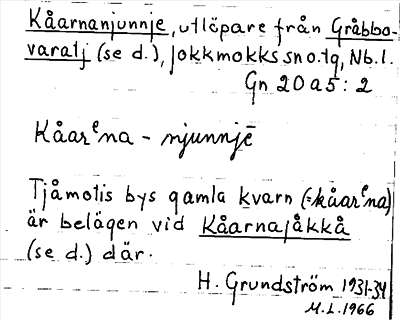 Kåarnanjunnje, utlöpare från Gråbbo-
varatj (se d.), Jokkmokks sn o. tg, Nb. l.
Gn 20 a 5 : 2
Kåarᵉna - njunnjē
Tjåmotis bys gamla kvarn (=kåarᵉna)
är belägen vid Kåarnajåkkå
(se d.) där.
H. Grundström 1931-34
M.L. 1966